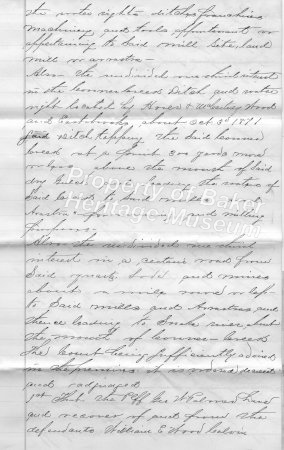 the water rights ditches franchises
machinery and tools appurtenant or
appertaining to Said mill Sites, and
mill or arrastra –
Also the undivided one third interest
in the Conner creek Ditch and water
right located by Wood
and Eastabrooks, about Oct 3d 1871
Said Ditch tapping the Said Conner
creek at a point 300 yards more
or less above the mouth of Said
dry the waters of
Said and
Arastra for and milling
purposes.
Also the undivided one third
interest in a certain road from
Said quartz lode and mines
about a mile more or less
to Said mills and Arrastras and
thence leading to Snake river, about
the mouth of Conner creek
The Court being Sufficiently advised
in the premises it is ordered decreed
and adjudged
1st That the Plff Geo W
and recover of and from the
defendants William E Wood Calvin
Property of Baker
Heritage Museum